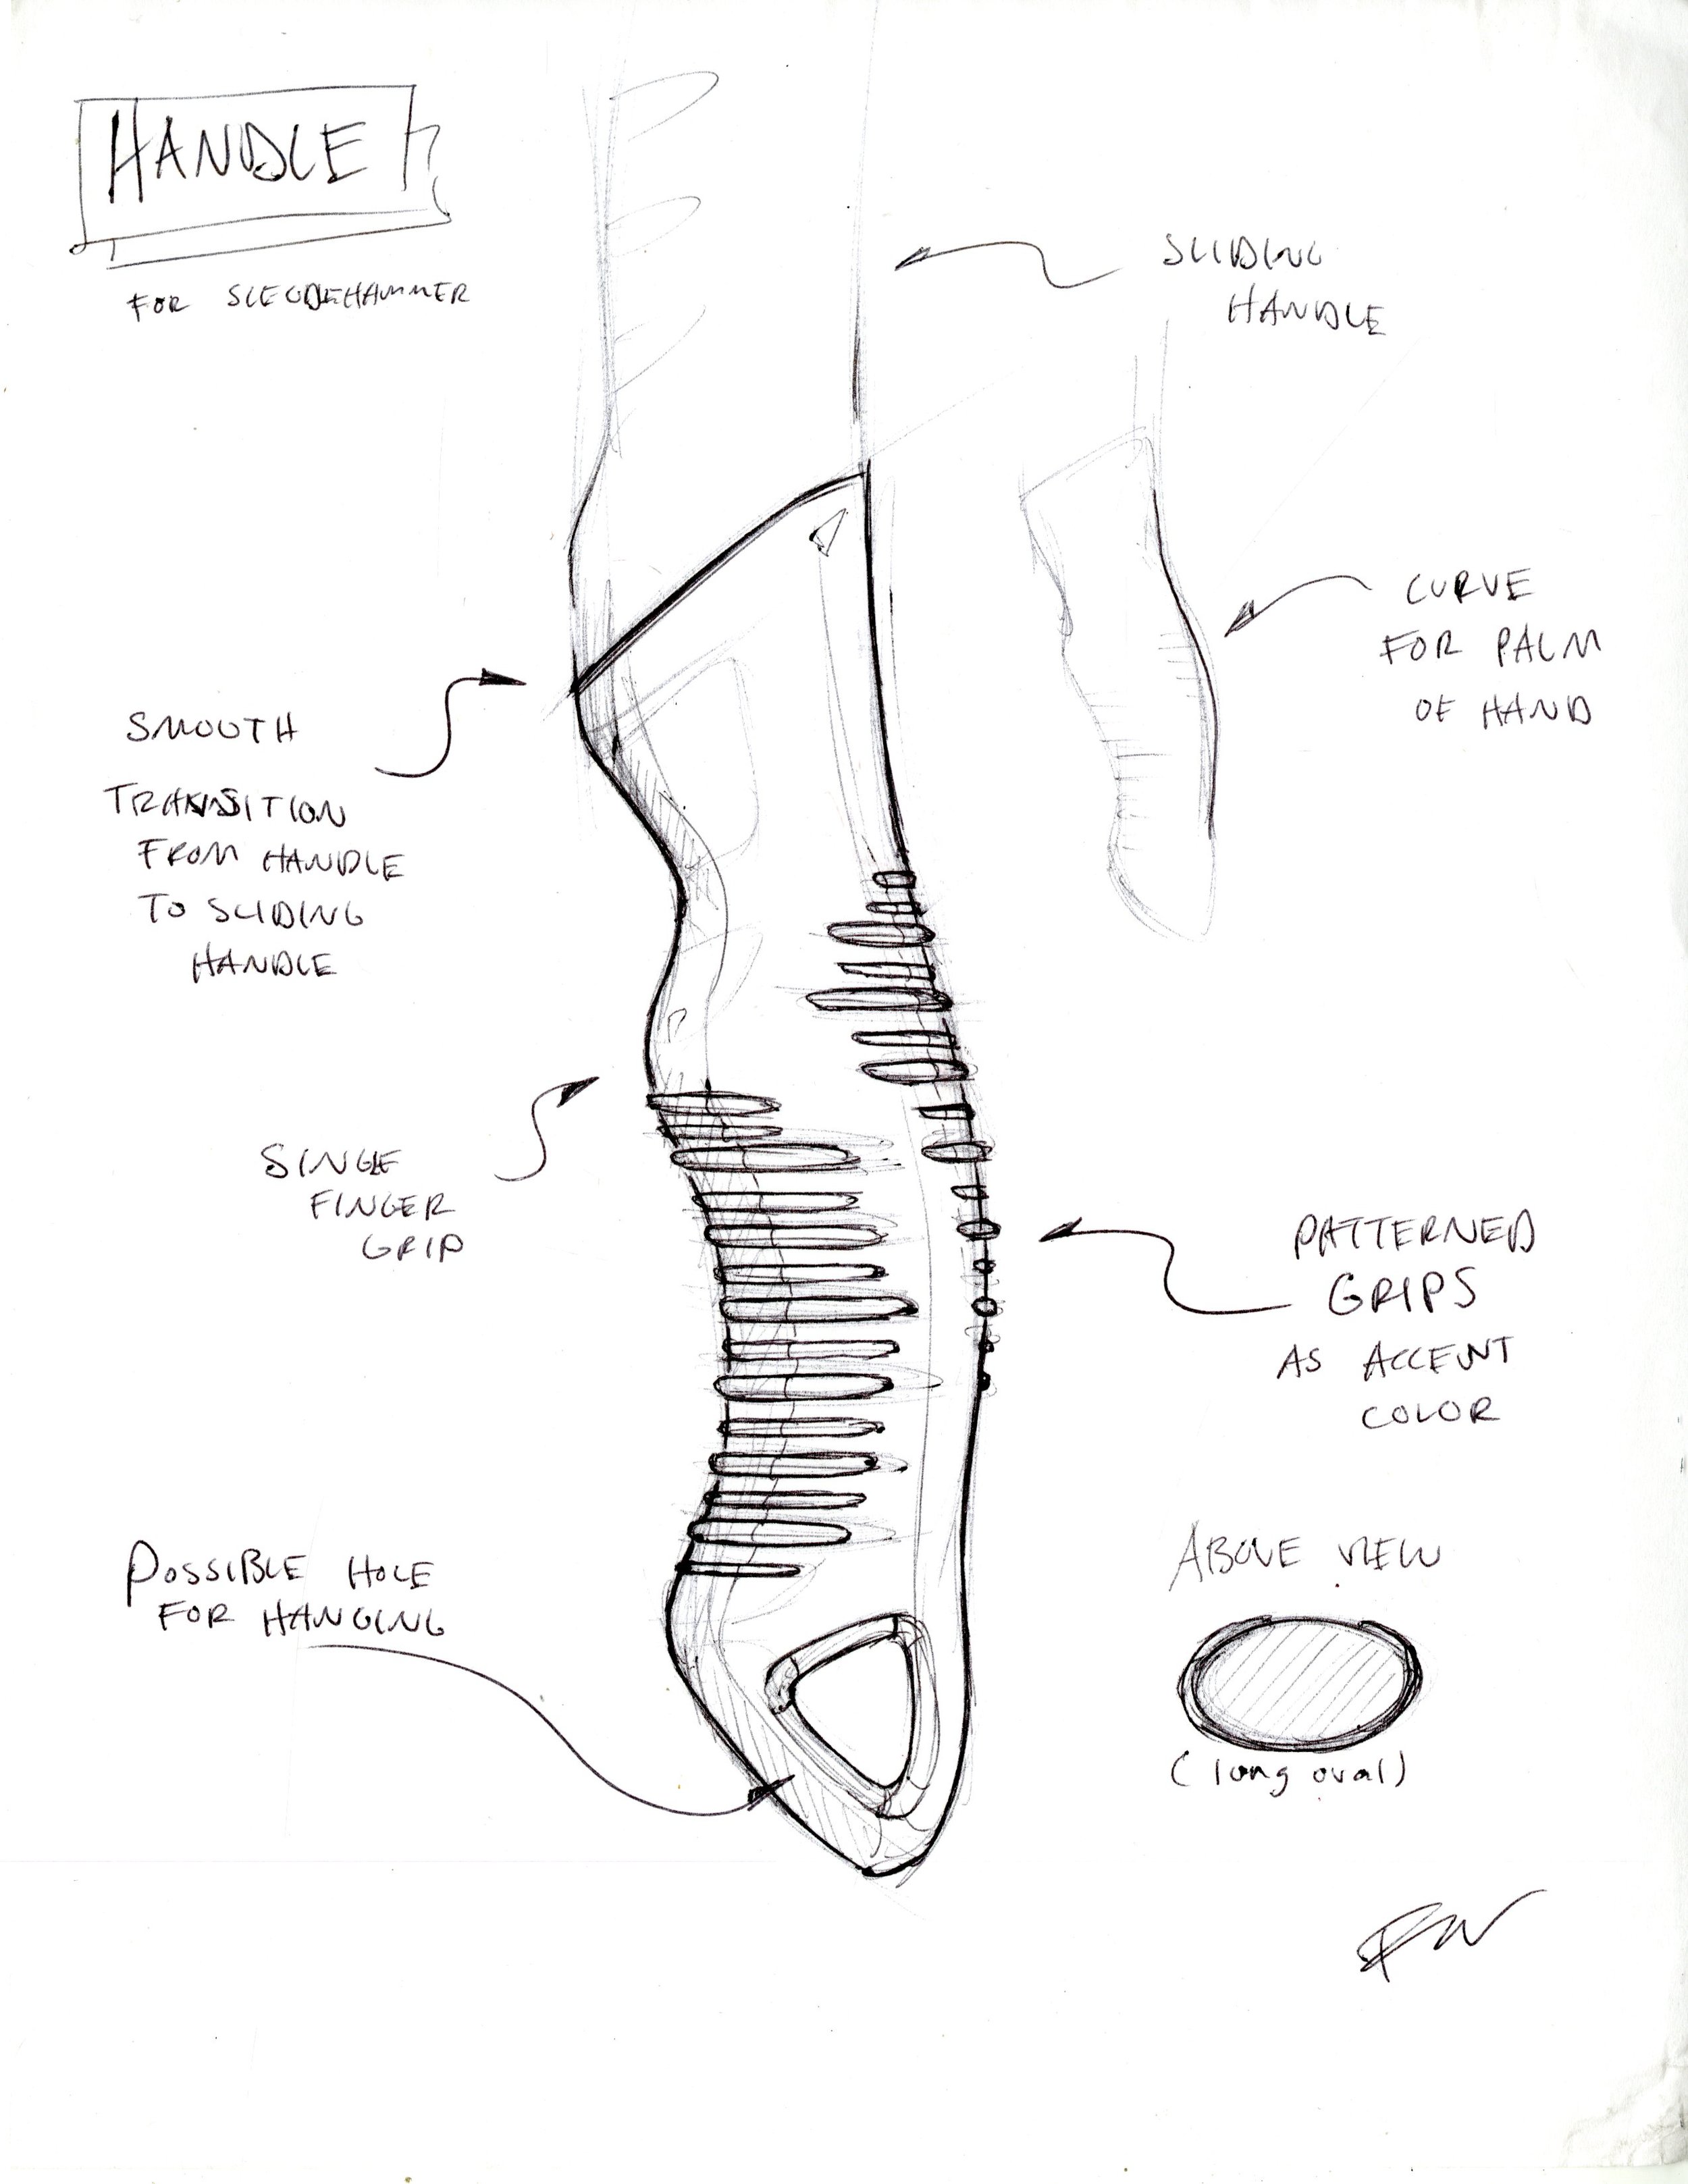 HANDLE
FOR SLEGDEHAMMER
SLIDING
HANDLE
CURVE
FOR PALM
OF HAND
SMOOTH
TRANSITION
FROM HANDLE
TO SLIDING
HANDLE
SINGLE
FINGER
GRIP
PATTERNED
GRIPS
AS ACCENT
COLOR
POSSIBLE HOLE
FOR HANGING
ABOVE VIEW
(long oval)